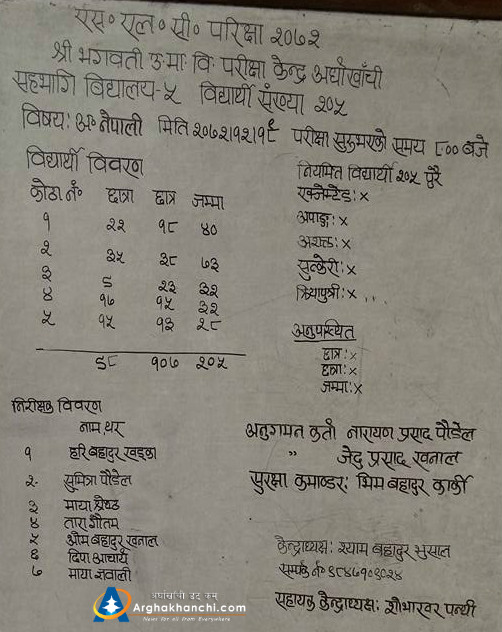 एस॰ एल॰ सी॰ परिक्षा २०७२
श्री भगवती उ॰मा॰ वि॰ परीक्षा केन्द्र अर्घाखाँची
सहभागि विद्यालय-५ विद्यार्थी संख्या २०५
विषय: अ॰ नेपाली मिति २०७२।१२।१९ परीक्षा सुरुभएको समय ८:०० बजे
विद्यार्थी विवरण
कोठा नं॰ छात्रा छात्र जम्मा
१ २२ १८ ४०
२ ३५ ३८ ७३
३ ९ २३ ३२
४ १७ १५ ३२
५ १५ १३ २८
९८ १०७ २०५
नियमित विद्यार्थी २०५ पुरै
एक्जेम्टेड: x
अपाङ्ग: x
अशक्त: x
सुत्केरी: x
क्रियापुत्री: x
अनुपस्थित
छात्र: x
छात्रा: x
जम्मा: x
निरीक्षक विवरण
नाम, थर
१ हरि बहादुर खड्का
२. सुमित्रा पौडेल
३ माया श्रेष्ठ
४ तारा गौतम
५ ओम बहादुर खनाल
६ दिपा आचार्य
७ माया ज्ञवाली
अनुगमन कर्ता नारायण प्रसाद पौडेल
" जेदु प्रसाद खनाल
सुरक्षा कमाण्डर: भिम बहादुर कार्की
केन्द्राध्यक्ष: श्याम बहादुर भुसाल
सम्पर्क नं॰ ९८४७१०९०२४
सहायक केन्द्राध्यक्ष: शोभाखर पन्थी
अर्घाखाँची डट कम्
Arghakhanchi.com
News for all from Everywhere